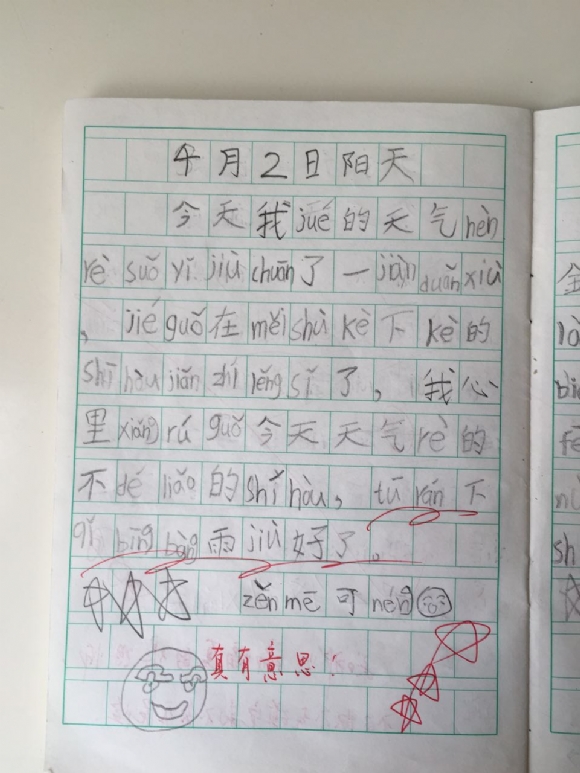 4月2日阳天
今天我jué的天气hèn
rè suǒ yǐ jiù chuān了一jiàn duǎn xiù
，jié guǒ在měi shù kè下kè的
shí hòu jiǎn zhí lěng sǐ了，我心
里xiǎng rú guǒ今天天气rè的
不dé liǎo的shí hàu，tū rán下
qǐ bīng báng雨jiù好了。
zěn mē可néng
真有意思！